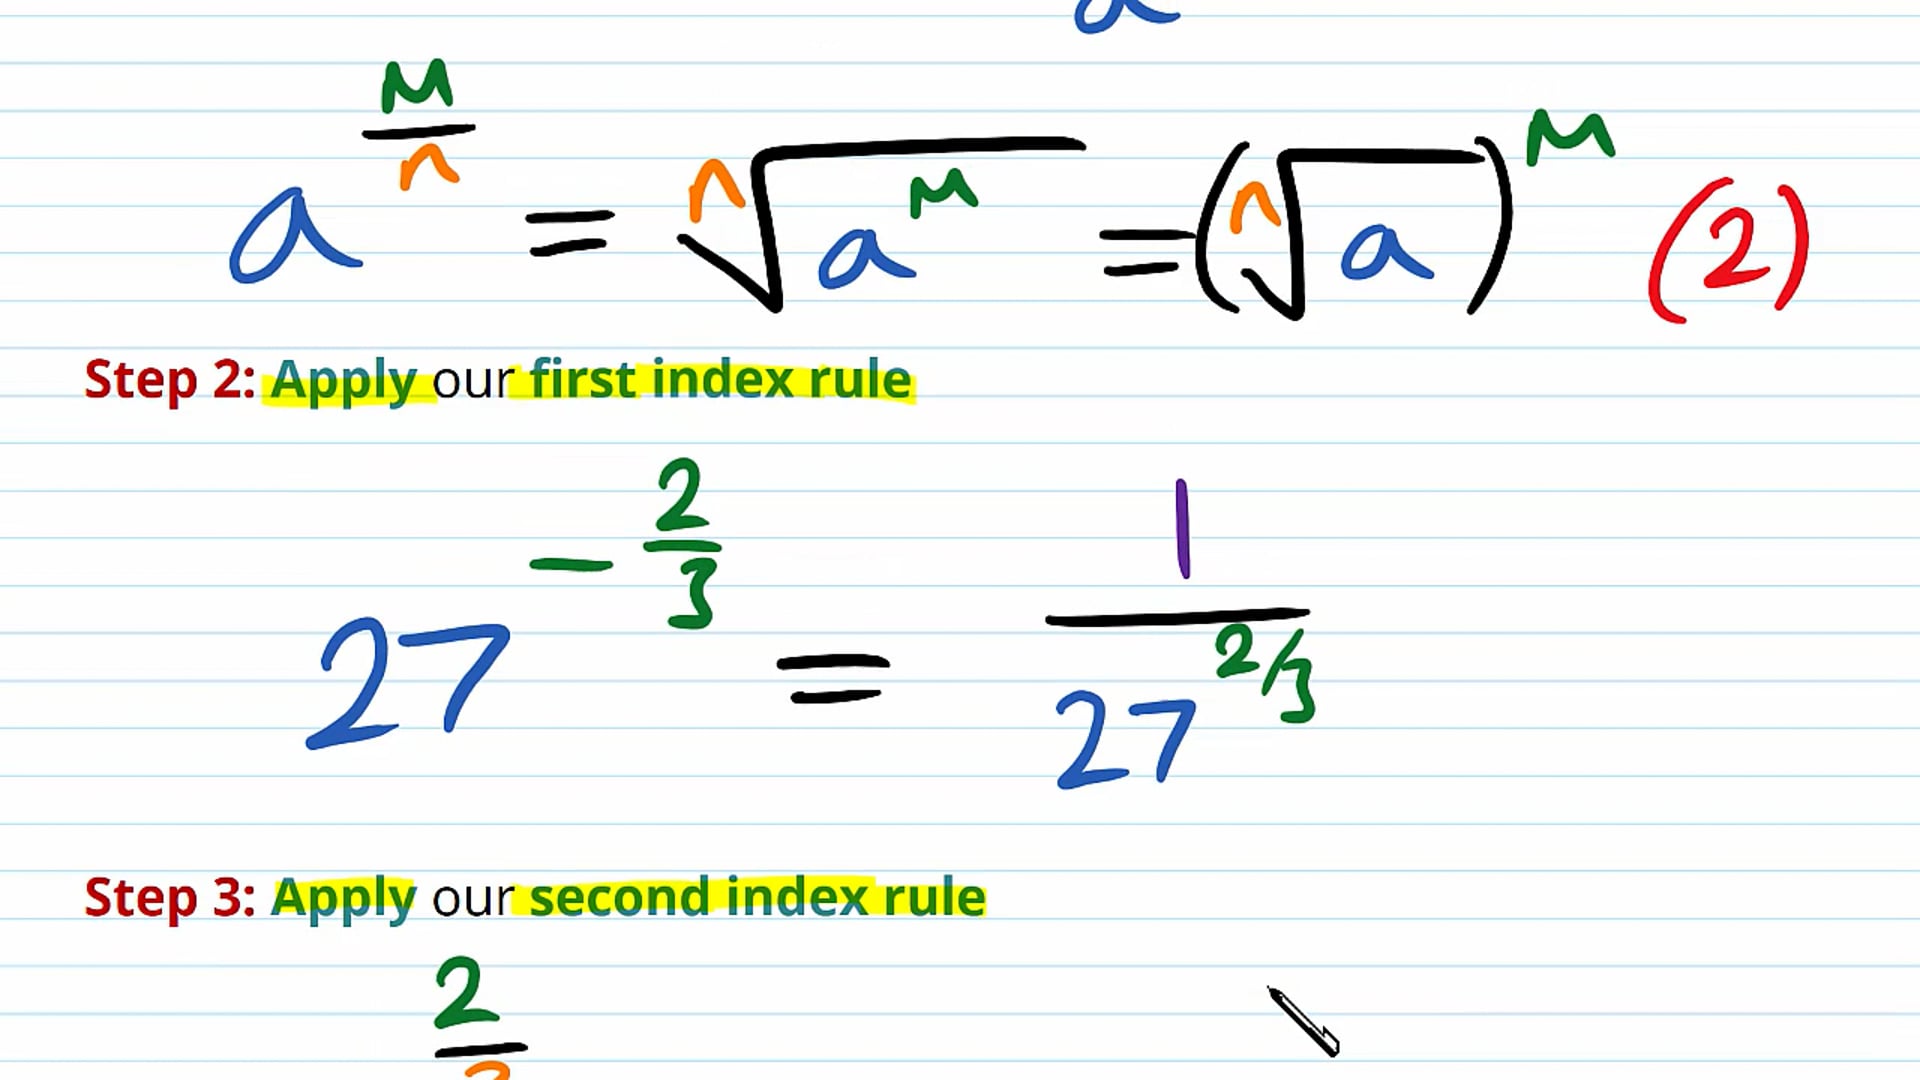 a
a^(M/n) = ⁿ√(a^M) = (ⁿ√a)^M (2)
Step 2: Apply our first index rule
27^(-2/3) = 1/27^(2/3)
Step 3: Apply our second index rule
2